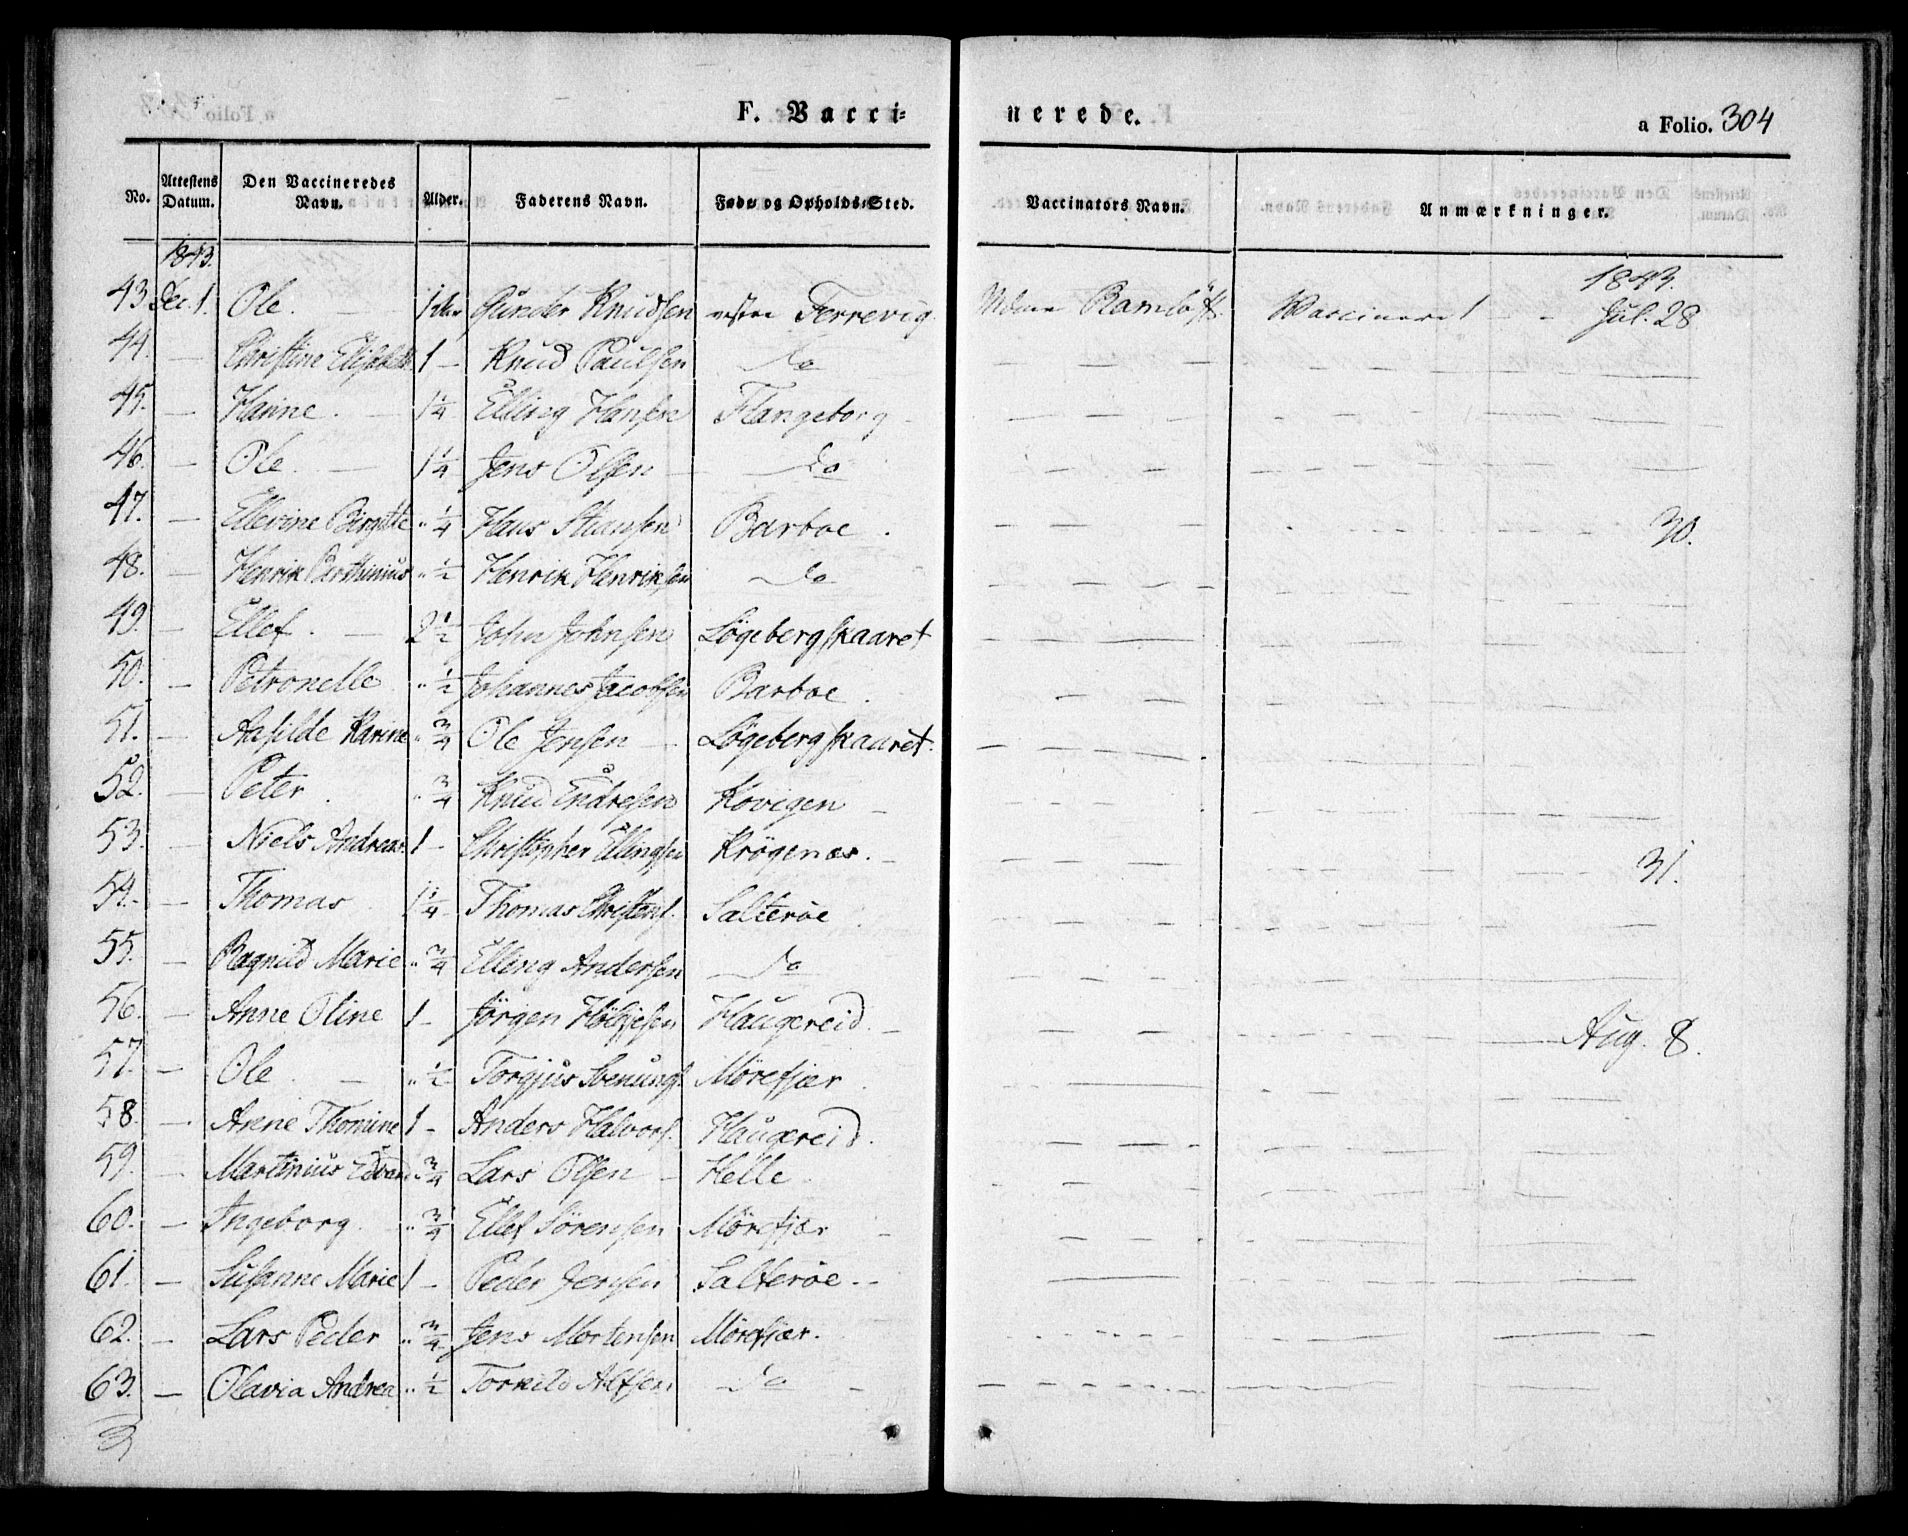 F. Vacci- nerede. a Folio. 304
No. Attestens Datum. Den Vaccineredes Navn. Alder. Faderens Navn. Føde- og Opholds-Sted. Vaccinators Navn. Anmærkninger.
1843. 1843.
43. Dec. 1. Ole. Gunder Knudsen Terrevig Jul. 28.
44. — Christine 1 — Knud Paulsen do
45. — Hanne. — 1 1/4 Elling Hansen Flangeborg
46. — Ole. — 1 1/4 Jens Olsen — do
47. — Ellevine Birgitte " 1/4 Hans Barboe. 30.
48. — Henrik " 1/2 Henrik Henriksen do
49. — Ellef. — 2 1/2 John Johnsen Løgebergskaaret
50. — Petronelle " 1/2 Johannes Jacobsen Barboe.
51. — Aasilde Karine " 3/4 Ole Jensen — Løgebergskaaret.
52. — Peter. " 3/4 Knud Endresen Kovigen —
53. — Niels Andreas 1 — Christopher Ellingsen Krøgenæs. — 31.
54. — Thomas 1 1/4 Thomas Christens. Salterøe
55. — Ragnild Marie " 3/4 Elling Andersen do
56. — Anne Oline 1 — Jørgen Haugereid. — Aug. 8.
57. — Ole. — " 1/2 Torgjus Svenungs. Mørefjær.
58. — Anne Thomine 1 — Anders Halvors. Haugereid.
59. — Martinius Edvard " 3/4 Lars Olsen — Helle
60. — Ingeborg. " 3/4 Ellef Sørensen Mørefjær —
61. — Susanne Marie 1 — Peder Jensen Salterøe. —
62. — Lars Peder " 3/4 Jens Mortensen Mørefjær.
63. — Olavia Andrea " 1/2 Torkild Alfsen do —